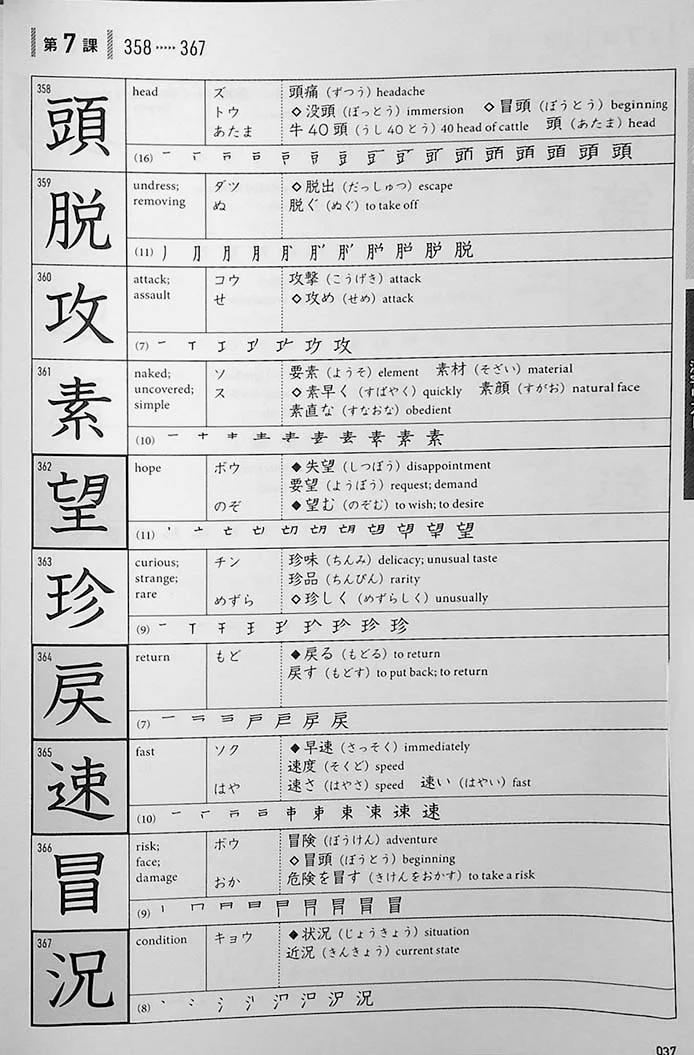 第7課 358……367
358
頭
head
ズ
トウ
あたま
頭痛（ずつう）headache
◇没頭（ぼっとう）immersion ◇冒頭（ぼうとう）beginning
牛40頭（うし40とう）40 head of cattle 頭（あたま）head
(16)
359
脱
undress;
removing
ダツ
ぬ
◇脱出（だっしゅつ）escape
脱ぐ（ぬぐ）to take off
(11)
360
攻
attack;
assault
コウ
せ
攻撃（こうげき）attack
◇攻め（せめ）attack
(7)
361
素
naked;
uncovered;
simple
ソ
ス
要素（ようそ）element 素材（そざい）material
◇素早く（すばやく）quickly 素顔（すがお）natural face
素直な（すなおな）obedient
(10)
362
望
hope
ボウ
のぞ
◆失望（しつぼう）disappointment
要望（ようぼう）request; demand
◆望む（のぞむ）to wish; to desire
(11)
363
珍
curious;
strange;
rare
チン
めずら
珍味（ちんみ）delicacy; unusual taste
珍品（ちんぴん）rarity
◇珍しく（めずらしく）unusually
(9)
364
戻
return
もど
◆戻る（もどる）to return
戻す（もどす）to put back; to return
(7)
365
速
fast
ソク
はや
◆早速（さっそく）immediately
速度（そくど）speed
速さ（はやさ）speed 速い（はやい）fast
(10)
366
冒
risk;
face;
damage
ボウ
おか
冒険（ぼうけん）adventure
◇冒頭（ぼうとう）beginning
危険を冒す（きけんをおかす）to take a risk
(9)
367
況
condition
キョウ
◆状況（じょうきょう）situation
近況（きんきょう）current state
(8)
037